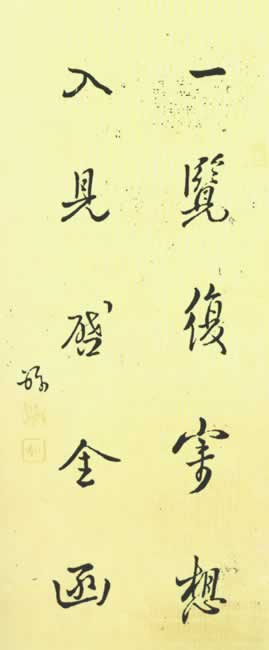 一覽復寄想
入見啓金函